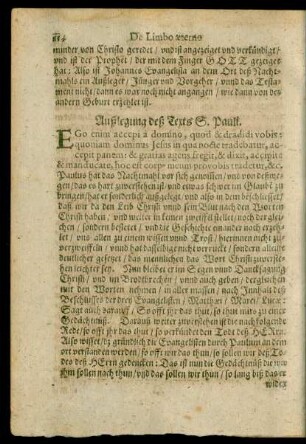 De Limbo æterno
minder, von Christo geredet / vnd ist angezeiget vnd verkündiget /
vnd ist der Prophet / der mit dem Finger GOTT gezeiget
hat: Also ist Johannes Evangelista an dem Ort deß Nacht-
mahls ein Außleger / Jünger vnd Vorgeher / vnnd das Testa-
ment nicht / dann es war noch nicht angangen / wie dann von der
andern Geburt erzehlet ist.
Außlegung deß Texts S. Pauli.
EGo enim accepi à domino, quod & tradidi vobis:
quoniam dominus Jesus in qua nocte tradebatur, ac-
cepit panem: & gratias agens fregit, & dixit, accipite
& manducate, hoc est corpus meum pro vobis tradetur, &c.
Paulus hat das Nachtmahl vor sich genossen / vnd von deßwe-
gen / das es hart zuverstehen ist / vnd etwas schwer im Glaubẽ zu
bringen / hat er sonderlich außgelegt / vnd also in dem beschlossen /
daß wir da den Leib Christi vnnd sein Blut nach den Worten
Christi haben / vnd weitter in keinen zweiffel stellet / noch der glei-
chen / sondern bestetet / vnd die Geschichte einander noch erzeh-
let / vns allen zu einem wissen vnnd Trost / hierinnen nicht zu-
verzweiffeln / vnnd hat dasselbige nicht verruckt / sondern alles
deutlicher gesetzet / das menniglichen das Wort Christi zuverste-
hen leichter sey. Nun bleibet er im Segen vnnd Dancksagung
Christi / vnd im Brodt
mit den Worten nehmen / in allen massen / nach Innhalt deß
Beschlusses der drey Evangelisten / Matthæi / Marci / Lucæ:
Sagt auch darauff / So offt jhr das thut / so thun mirs zu einer
Gedächtnüß. Darauß weiter zuverstehen ist die nachfolgende
Rede / so offt jhr das thut / so verkündet den Todt deß HErrn.
Also wisset / dz gründlich die Evangelisten durch Paulum an dem
ort verstanden werden / so offt wir das thun / so sollen wir deß To-
des deß HErrn gedencken: Das ist nun die Gedächtnüß die wir
jhm sollen nach thun / vnd das sollen wir thun / so lang biß das er
wider